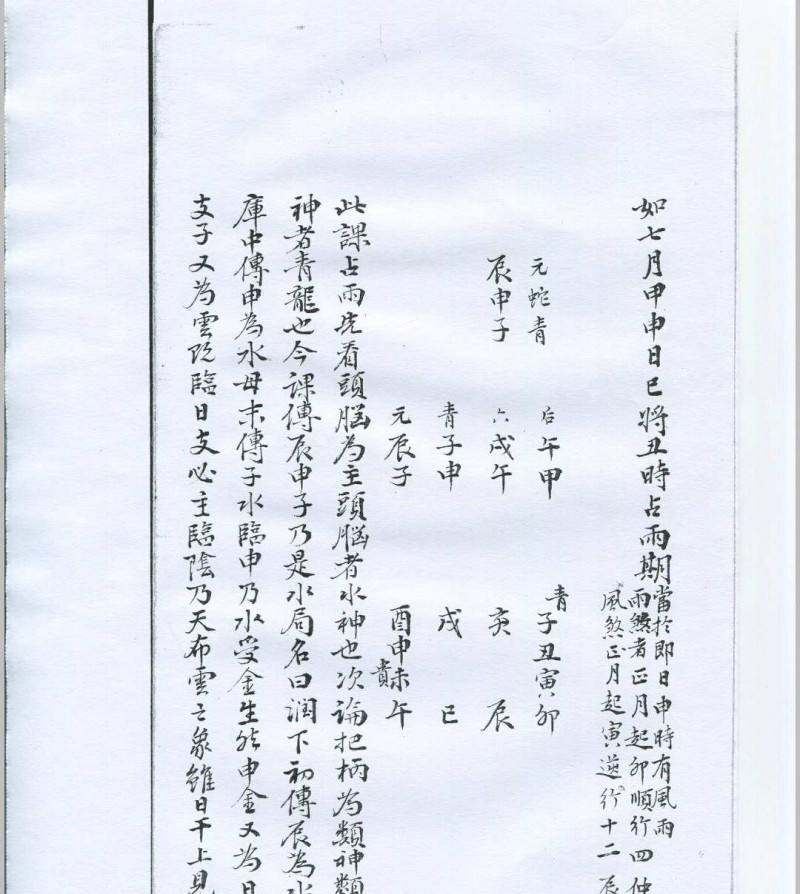 如七月甲申日巳將丑時占雨期
當於即日申時有風雨
雨煞者正月起卯順行四仲
風煞正月起寅逆行十二辰
元蛇青
辰申子
后午甲
六戌午
青子申
元辰子
青
子丑寅卯
亥辰
戌巳
酉申未午
貴
此課占雨先看頭腦為主頭腦者水神也次論把柄為類神類
神者青龍也今課傳辰申子乃是水局名曰润下初傳辰為水
庫中傳申為水母末傳子水臨申乃水受金生然申金又為日
支子又為雲既臨日支必主臨陰乃天布雲之象雖日干上見